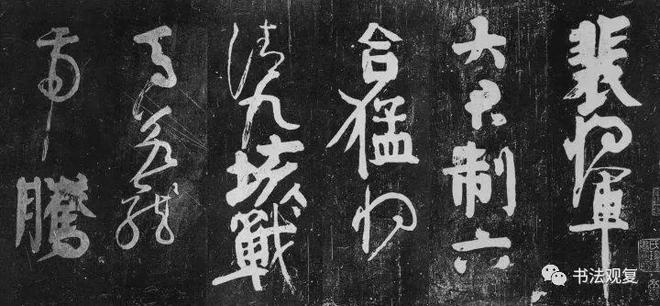 裴將軍
大君制六
合猛將
清九垓戰
馬若龍
虎騰
书法观复